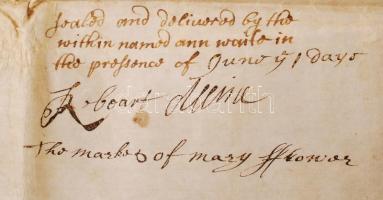 sealed and delivered by the
within named ann waile in
the pressence of June yͤ 1 daye
Robeart
the marke of mary fflower